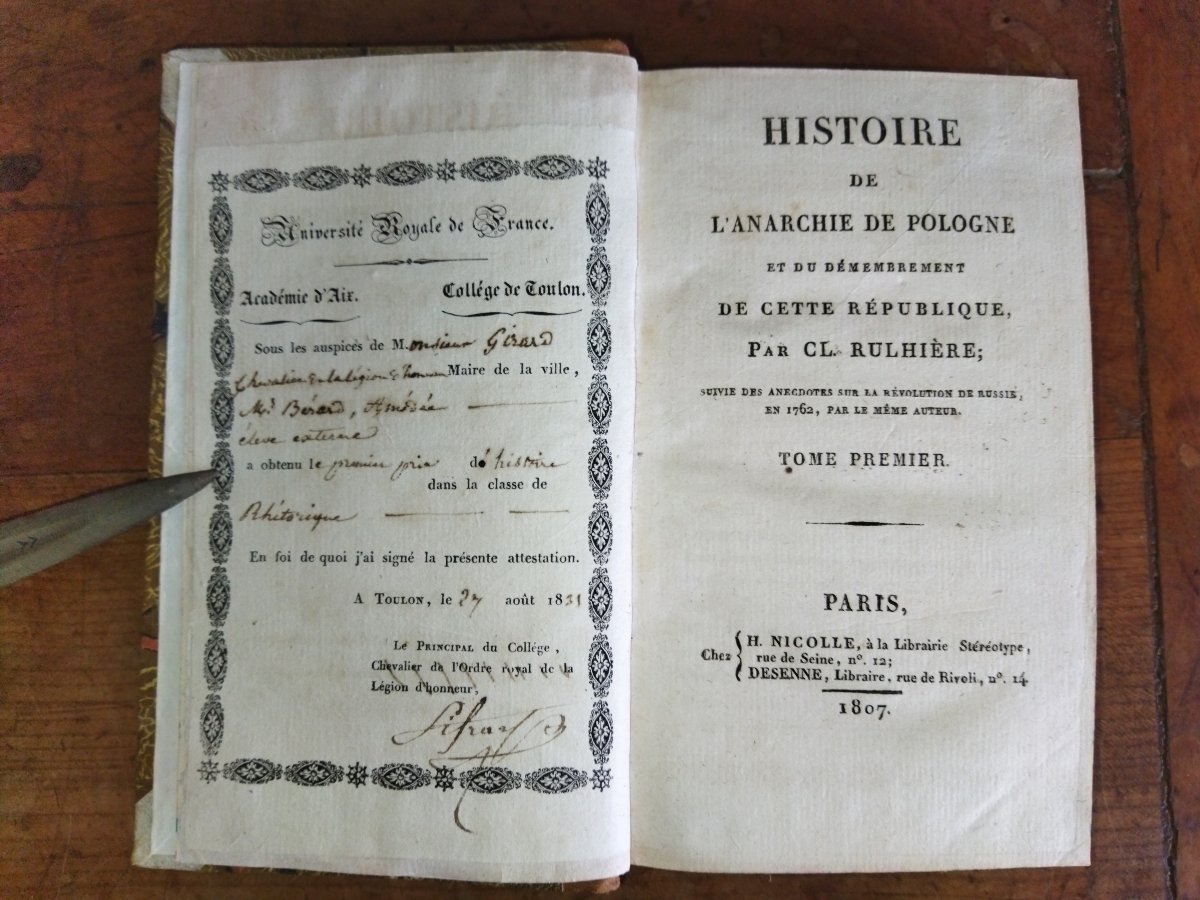 Université Royale de France.
Académie d'Aix.
Collége de Toulon.
Sous les auspices de M.onsieur Gérard
Chevalier de la légion d'honneur Maire de la ville,
Mr. Bérard, Amédée
élève externe
a obtenu le premier prix d'histoire
dans la classe de
Rhétorique
En foi de quoi j'ai signé la présente attestation.
A TOULON, le 27 août 1831
Le PRINCIPAL du Collége,
Chevalier de l'Ordre royal de la
Légion d'honneur,
HISTOIRE
DE
L'ANARCHIE DE POLOGNE
ET DU DÉMEMBREMENT
DE CETTE RÉPUBLIQUE,
PAR CL. RULHIÈRE;
SUIVIE DES ANECDOTES SUR LA RÉVOLUTION DE RUSSIE,
EN 1762, PAR LE MÊME AUTEUR.
TOME PREMIER.
PARIS,
Chez H. NICOLLE, à la Librairie Stéréotype,
rue de Seine, n°. 12;
DESENNE, Libraire, rue de Rivoli, n°. 14
1807.